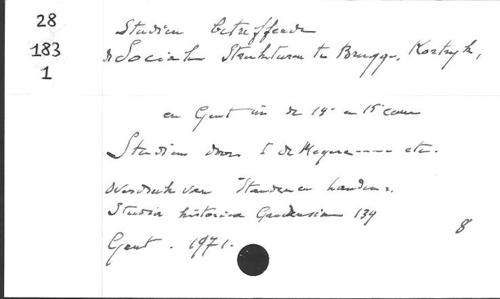 28
183
1
Studien betreffende
de Sociale Strukturen te Brugge, Kortrijk,
en Gent in de 14e en 15e eeuw
Studien door I de Meyere ---- etc.
Overdruk van Standen en Landen:
Studia historica Gandensia 139
8
Gent . 1971.